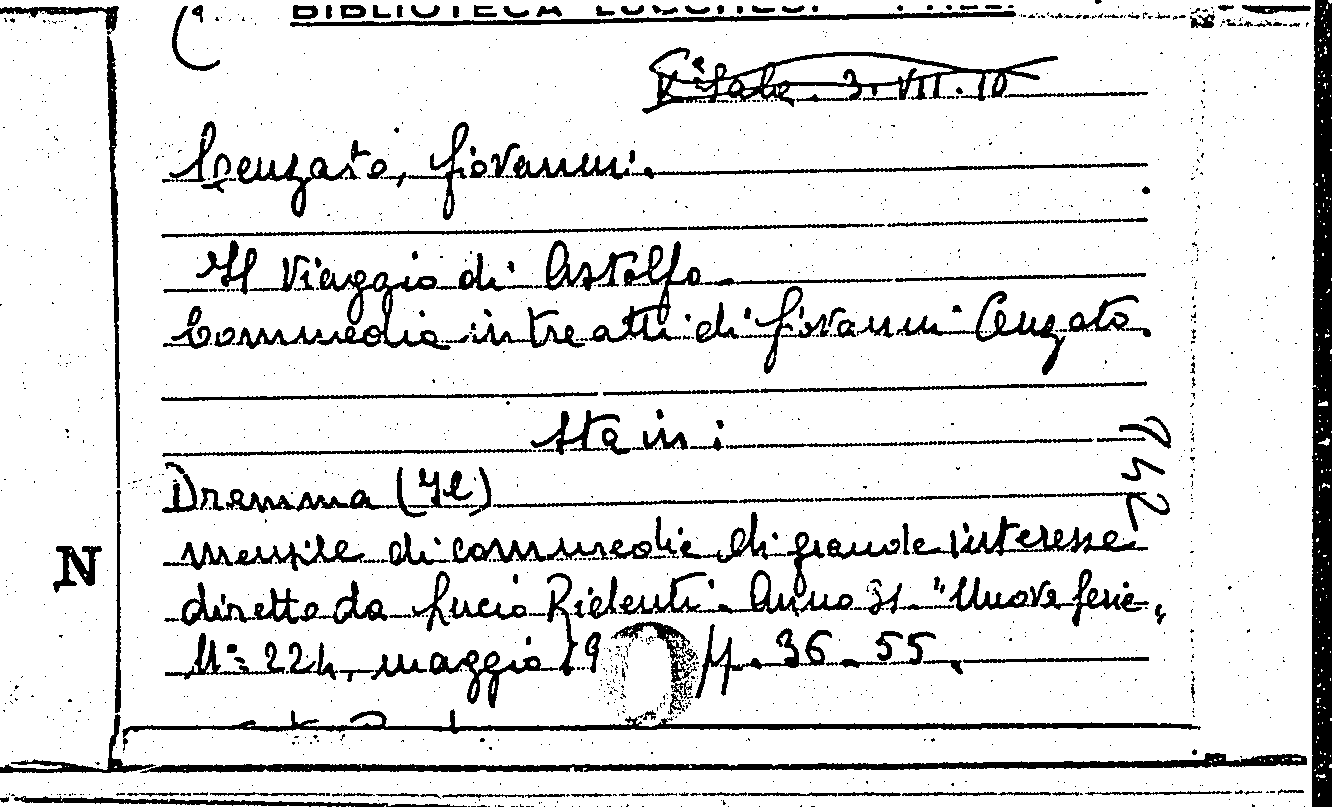 BIBLIOTECA LUCCHESI
Iª Sala. 3. VII. 10
Cenzato, Giovanni.
Il Viaggio di Astolfo.
Commedia in tre atti di Giovanni Cenzato.
Sta in:
Dramma (Il)
mensile di commedie di grande interesse
diretto da Lucio Ridenti. Anno 31. "Nuova serie„
N° 224, maggio 19 pp. 36-55.
N